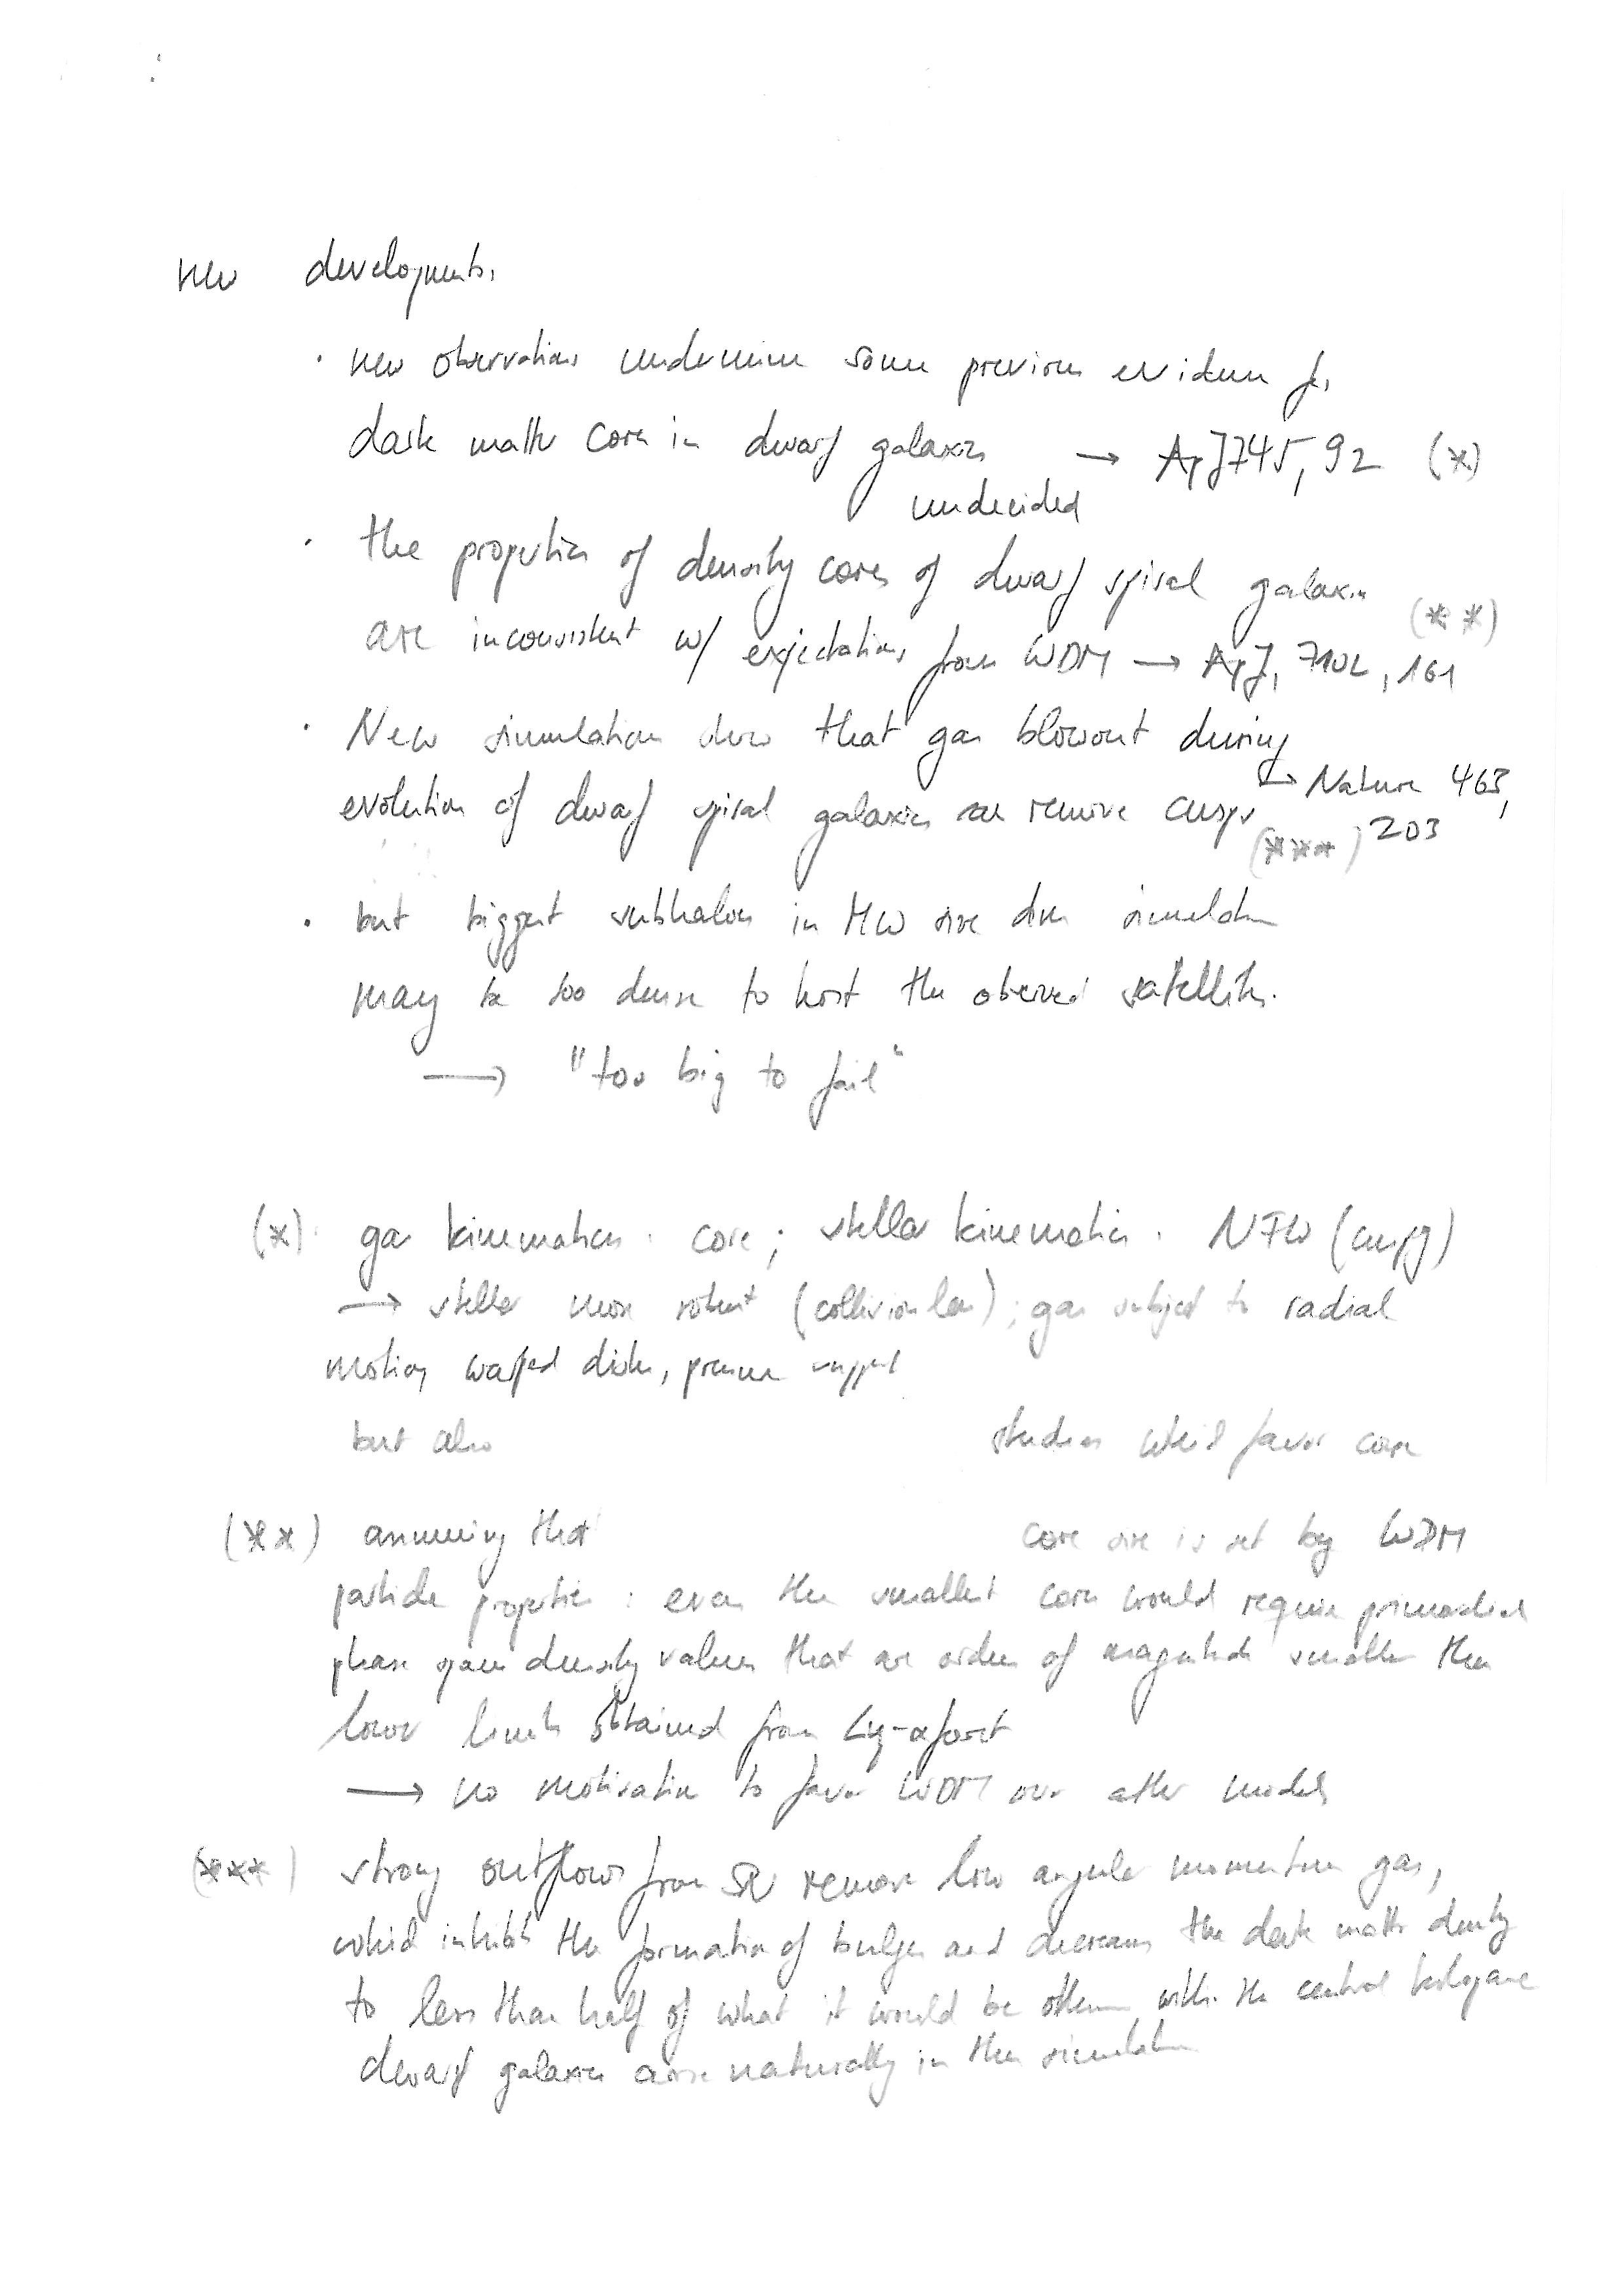 new developments,
· new observations undermine some previous evidence for
dark matter cores in dwarf galaxies → ApJ 745, 92 (*)
undecided
· the properties of density cores of dwarf spiral galaxies
are inconsistent w/ expectations from WDM → ApJ, 710L, 161 (**)
· New simulations show that gas blowout during
evolution of dwarf spiral galaxies can remove cusps → Nature 463, 203 (***)
· but biggest subhalos in MW size dm simulation
may be too dense to host the observed satellites.
→ "too big to fail"
(*) gas kinematics: core; stellar kinematics: NFW (cuspy)
→ stellar more robust (collisionless); gas subject to radial
motion, warped disks, pressure support
but also studies which favor core
(**) assuming that core size is set by WDM
particle properties: even the smallest cores would require primordial
phase space density values that are orders of magnitude smaller than
lower limits obtained from Ly-α forest
→ no motivation to favor WDM over other models
(***) strong outflows from SN remove low angular momentum gas,
which inhibits the formation of bulges and decreases the dark matter density
to less than half of what it would be within the central kiloparsec
dwarf galaxies arise naturally in the simulation